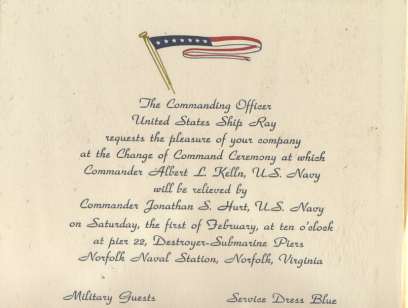 The Commanding Officer
United States Ship Ray
requests the pleasure of your company
at the Change of Command Ceremony at which
Commander Albert L. Kelln, U.S. Navy
will be relieved by
Commander Jonathan S. Hurt, U.S. Navy
on Saturday, the first of February, at ten o'clock
at pier 22, Destroyer-Submarine Piers
Norfolk Naval Station, Norfolk, Virginia
Military Guests Service Dress Blue